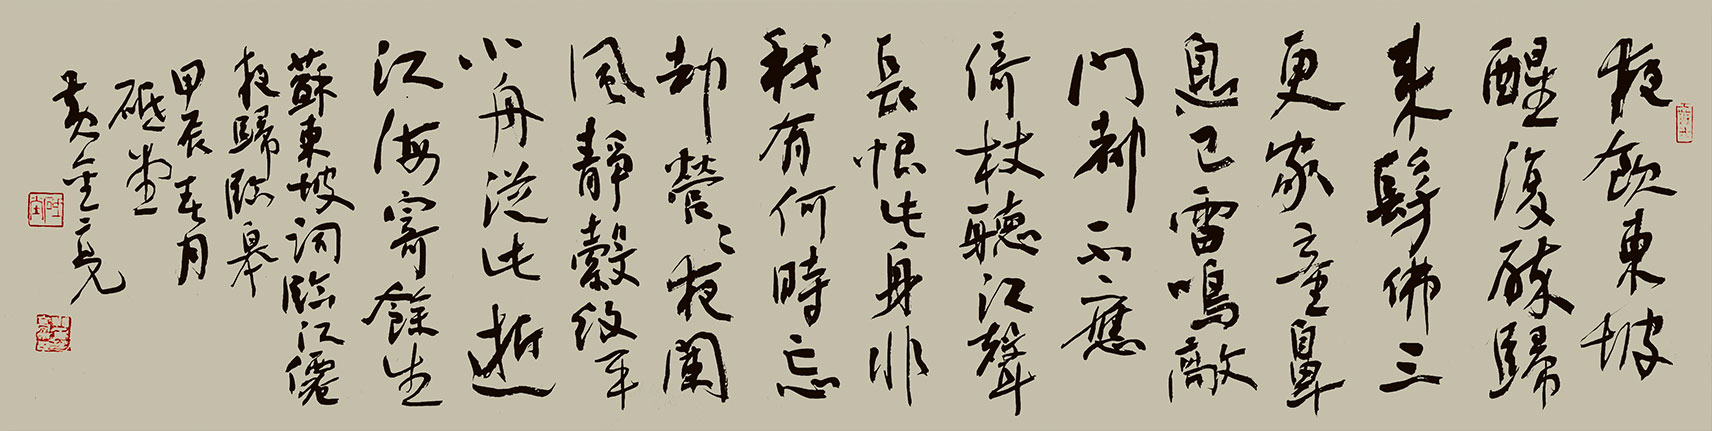 夜飲東坡
醒復醉歸
来髣佛三
更家童鼻
息已雷鳴敲
門都不應
倚杖聽江聲
長恨此身非
我有何時忘
却營〻夜闌
風靜縠紋平
小舟從此逝
江海寄餘生
蘇東坡詞臨江僊
夜歸臨皋
甲辰春月
砥堂
黄金亮